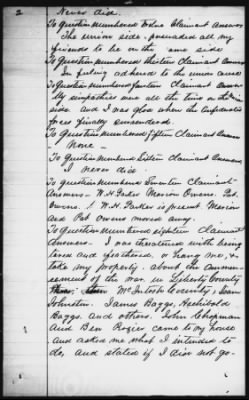 2 Never did.
To Question Numbered Twelve Claimant Answers
The union side, persuaded all my
friends to be on the same side
To Question Numbered thirteen Claimant Answers
In feeling adhered to the union cause
To Question Numbered fourteen Claimant Answers
My sympathies were all the time on the Union
side and I was glad when the Confederate
forces finally surrendered.
To Question Numbered fifteen Claimant Answers
- None -
To Question Numbered Sixteen Claimant Answers
I never did.
To question Numbered Seventeen Claimant
Answers W. H. Parker Marion Owens. Pat
Owens. W. H. Parker is present Marion
and Pat Owens moved away.
To Question Numbered eighteen Claimant
Answers. I was threatened with being
tared and feathered, or hang me, &
take my property. about the commen-
cement of the war in Liberty County
McIntosh County,
Johnston. James Baggs, Archibold
Baggs. and others. John Chapman
and Ben Rozier came to my house
and asked me what I intended to
do, and stated if I did not go-